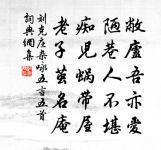 敝廬吾亦愛
陋巷人不堪
痴兒蝸帶屋
老子蓋名庵
劉克莊雜咏五言五首
詞典網集